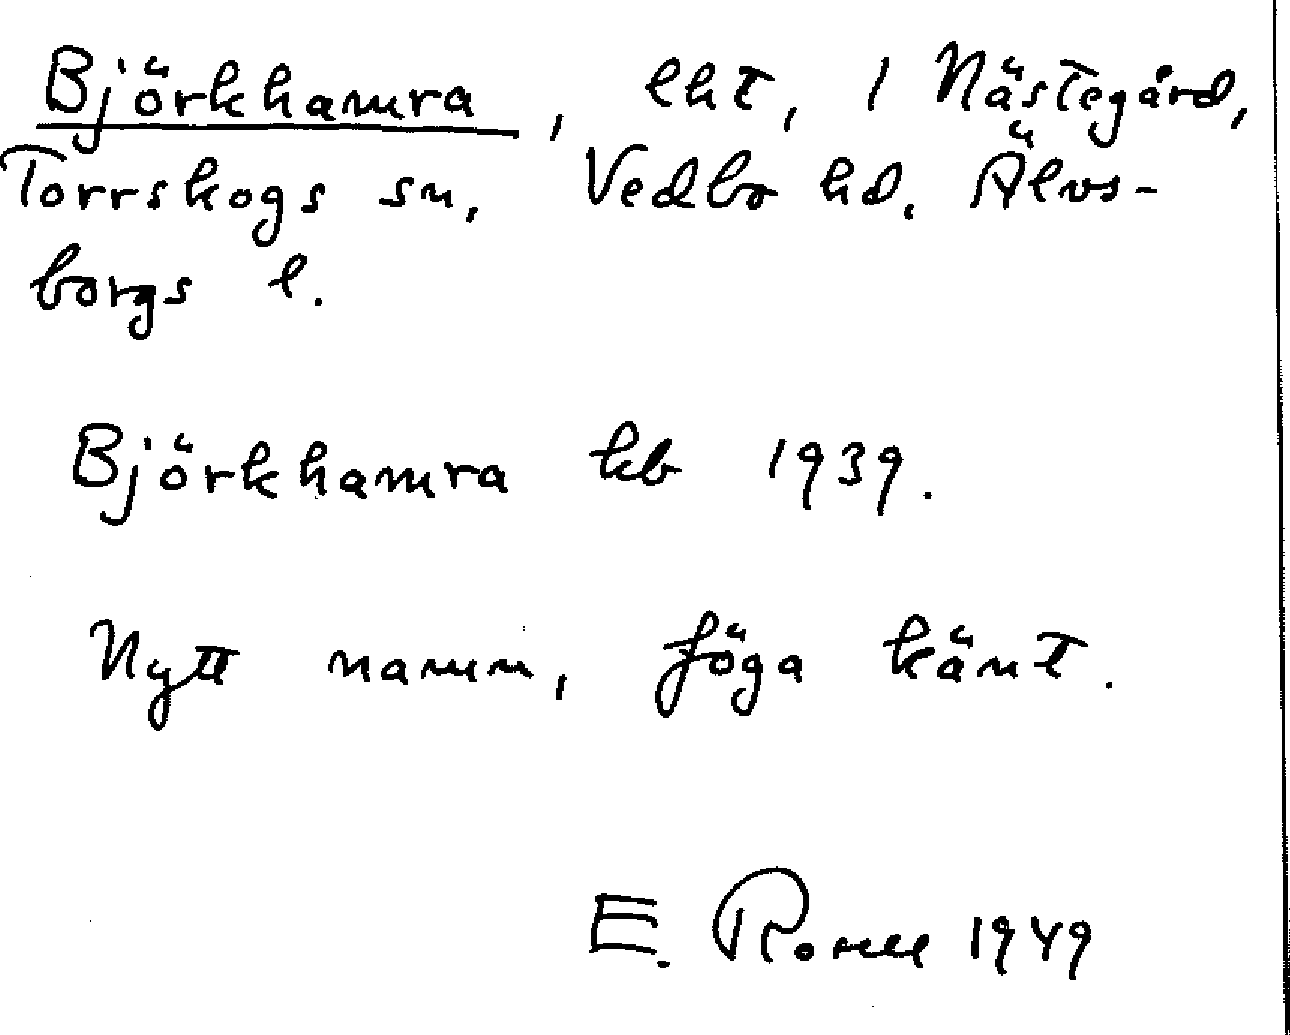 Björkhamra, lht, 1 Nästegård,
Torrskogs sn, Vedbo hd. Älvs-
borgs l.
Björkhamra kb 1939.
Nytt namn, föga känt.
E. 1949